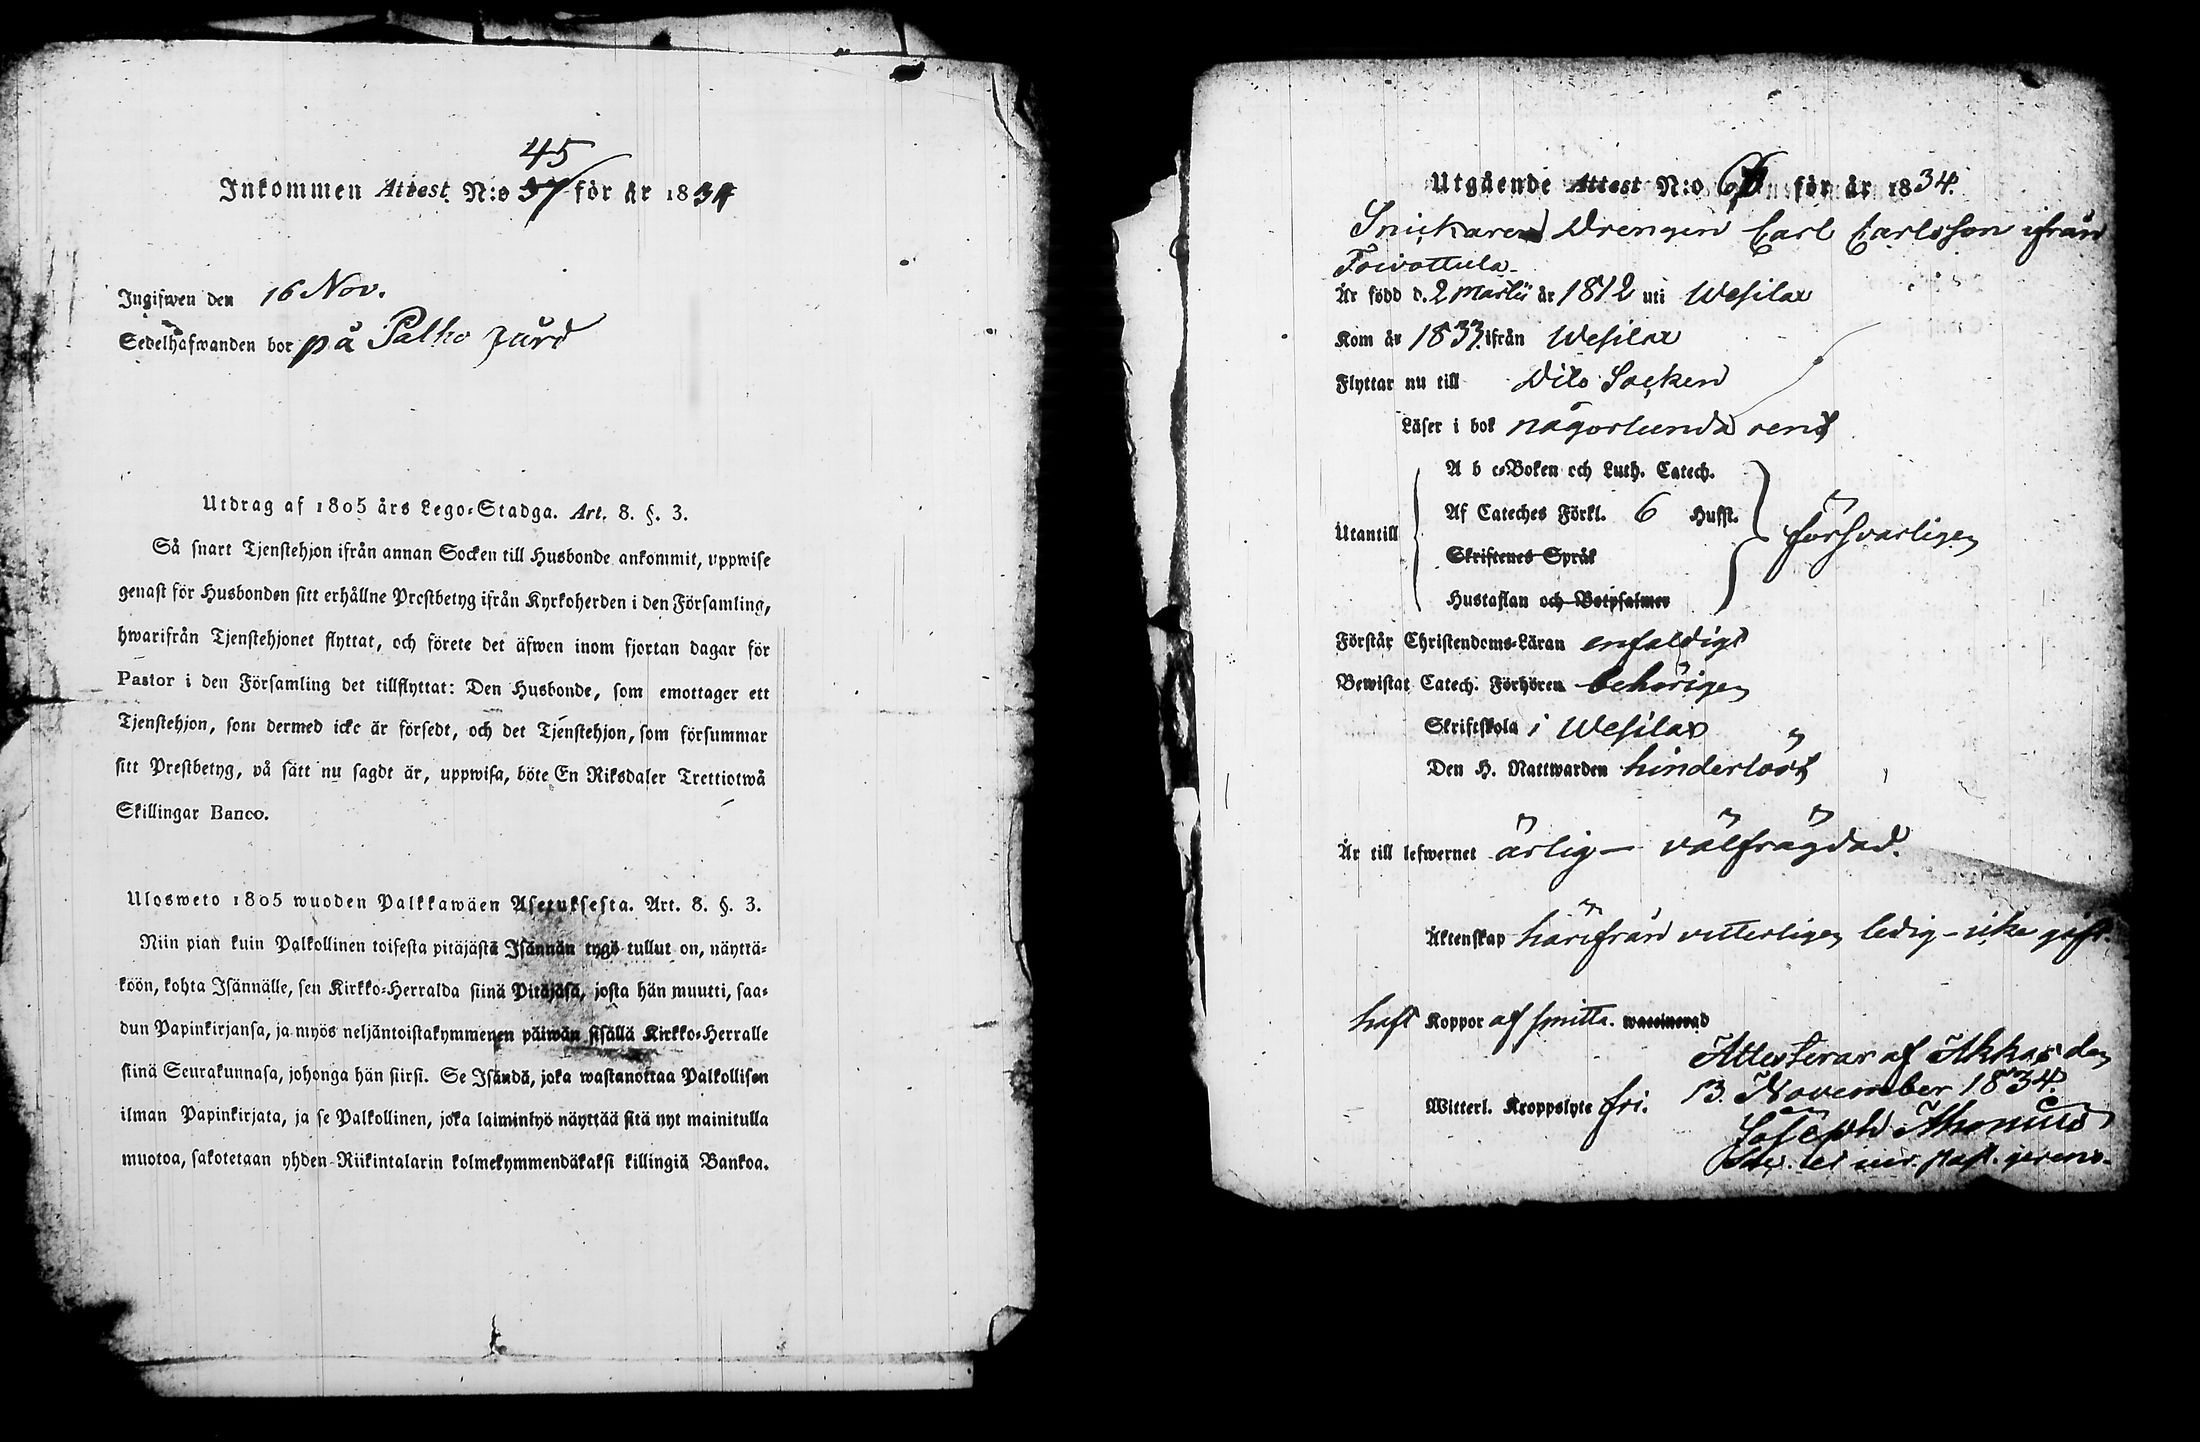 45
Inkommen Attest N:o 37 för år 1834
Ingifwen den 16 Nov.
Sedelhafwanden bor på Palho gård
Utdrag af 1805 års Lego-Stadga. Art. 8. §. 3.
Så snart Tjenstehjon ifrån annan Socken till Husbonde ankommit, uppwise
genast för Husbonden sitt erhållne Prestbetyg ifrån Kyrkoherden i den Församling,
hwarifrån Tjenstehjonet flyttat, och förete det äfwen inom fjortan dagar för
Pastor i den Församling det tillflyttat: Den Husbonde, som emottager ett
Tjenstehjon, som dermed icke är försedt, och det Tjenstehjon, som försummar
sitt Prestbetyg, på sätt nu sagdt är, uppwisa, böte En Riksdaler Trettiotwå
Skillingar Banco.
Ulosweto 1805 wuoden Palkkawäen Asetuksesta. Art. 8. §. 3.
Niin pian kuin Palkollinen toisesta pitäjästä Isännän tygö tullut on, näyttä-
köön, kohta Isännälle, sen Kirkko-Herralda siinä Pitäjäsä, josta hän muutti, saa-
dun Papinkirjansa, ja myös neljäntoistakymmenen päiwän sisällä Kirkko-Herralle
siinä Seurakunnasa, johonga hän siirsi. Se Isändä, joka wastanottaa Palkollisen
ilman Papinkirjata, ja se Palkollinen, joka laiminlyö näyttää sitä nyt mainitulla
muotoa, sakotetaan yhden Riikintalarin kolmekymmendäkaksi killingiä Bankoa.
Utgående Attest N:o för år 1834.
Snickare Drengen Carl Carlsson ifrån
Toivottula
Är född d. 2 Martii år 1812 uti Wesilax
Kom år 1833 ifrån Wesilax
Flyttar nu till Dito Socken
Läser i bok någorlunda rent
A b c-Boken och Luth. Catech.
Af Cateches Förkl. 6 Hufst.
Utantill försvarligen
Skriftenes Språk
Hustaflan och Botpsalmer
Förstår Christendoms-Läran enfaldigt
Bewistat Catech. Förhören behörigen
Skriftskola i Wesilax
Den H. Nattwarden hinderlöst
Är till lefwernet ärlig – välfrägdad.
Äktenskap härifrån vitterligen ledig – icke gift.
haft Koppor af smitta. waccinerad
Attesterar af Akkas den
Witterl. Kroppslyte fri. 13. November 1834.
Joseph